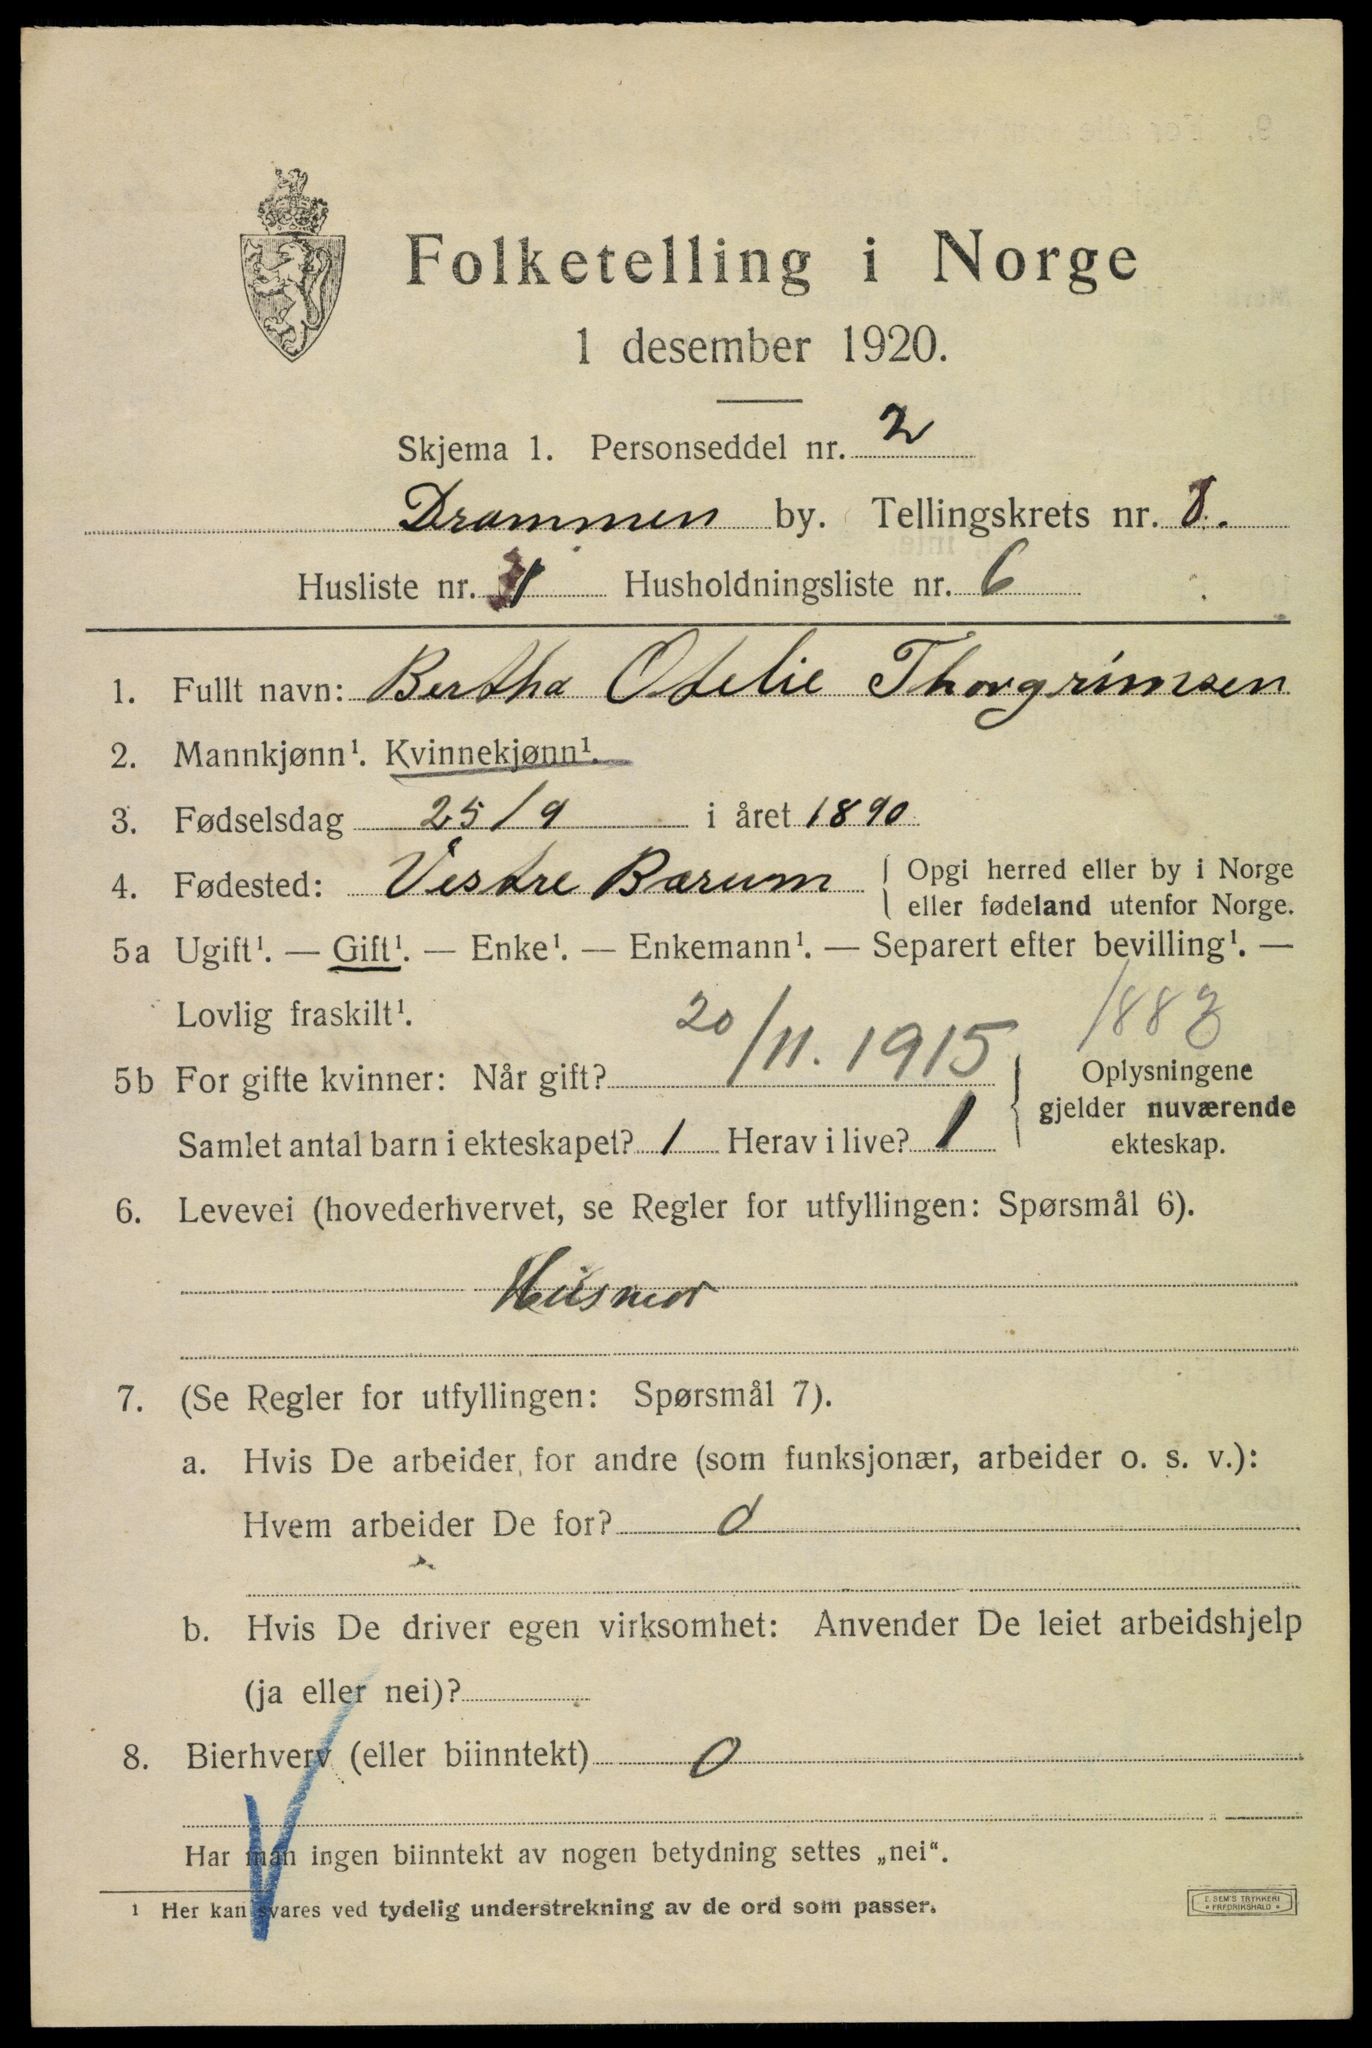 Folketelling i Norge
1 desember 1920.
Skjema 1. Personseddel nr. 2
Drammen by. Tellingskrets nr. 8.
Husliste nr. Husholdningsliste nr. 6
1. Fullt navn: Bertha Otelie Thorgrimsen
2. Mannkjønn¹. Kvinnekjønn¹.
3. Fødselsdag 25/9 i året 1890
4. Fødested: Vestre Bærum { Opgi herred eller by i Norge
eller fødeland utenfor Norge.
5a Ugift¹. — Gift¹. — Enke¹. — Enkemann¹. — Separert efter bevilling¹. —
Lovlig fraskilt¹.
1883
5b For gifte kvinner: Når gift? 20/11. 1915
Samlet antal barn i ekteskapet? 1 Herav i live? 1
Oplysningene
gjelder nuværende
ekteskap.
6. Levevei (hovederhvervet, se Regler for utfyllingen: Spørsmål 6).
Husmor
7. (Se Regler for utfyllingen: Spørsmål 7).
a. Hvis De arbeider for andre (som funksjonær, arbeider o. s. v.):
Hvem arbeider De for? 0
b. Hvis De driver egen virksomhet: Anvender De leiet arbeidshjelp
(ja eller nei)?
8. Bierhverv (eller biinntekt) 0
Har man ingen biinntekt av nogen betydning settes „nei“.
¹ Her kan svares ved tydelig understrekning av de ord som passer.
E. SEM'S TRYKKERI
* FREDRIKSHALD *